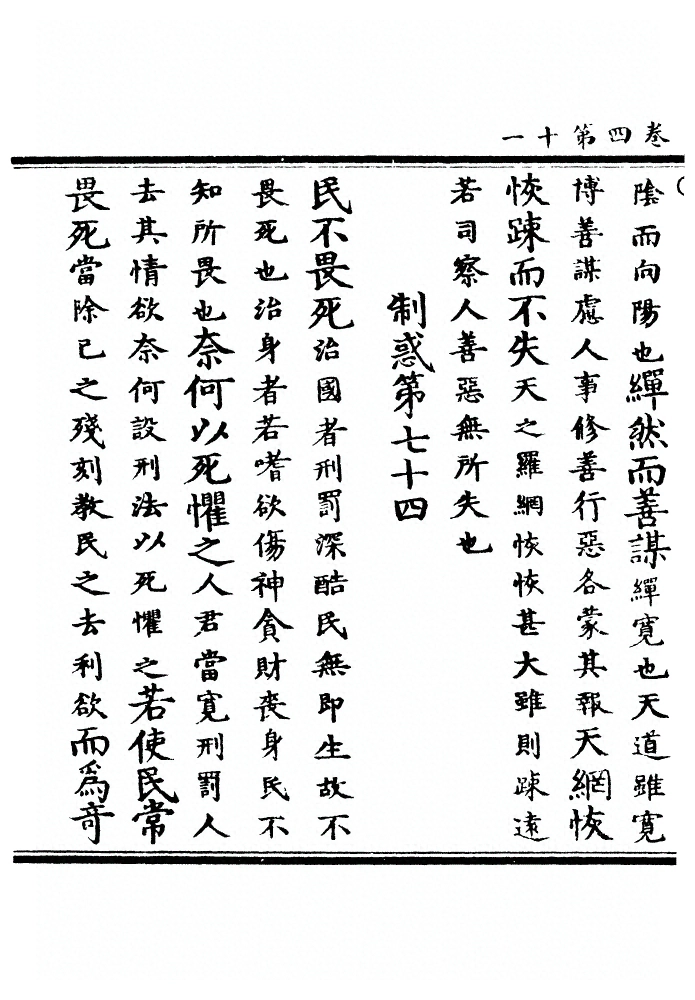 卷四第十一
陰而向陽也繟然而善謀繟寬也天道雖寬
博善謀慮人事修善行惡各蒙其報天網恢
恢踈而不失天之羅網恢恢甚大雖則踈遠
若司察人善惡無所失也
制惑第七十四
民不畏死治國者刑罰深酷民無即生故不
畏死也治身者若嗜欲傷神貪財喪身民不
知所畏也奈何以死懼之人君當寬刑罰人
去其情欲奈何設刑法以死懼之若使民常
畏死當除已之殘刻教民之去利欲而爲奇